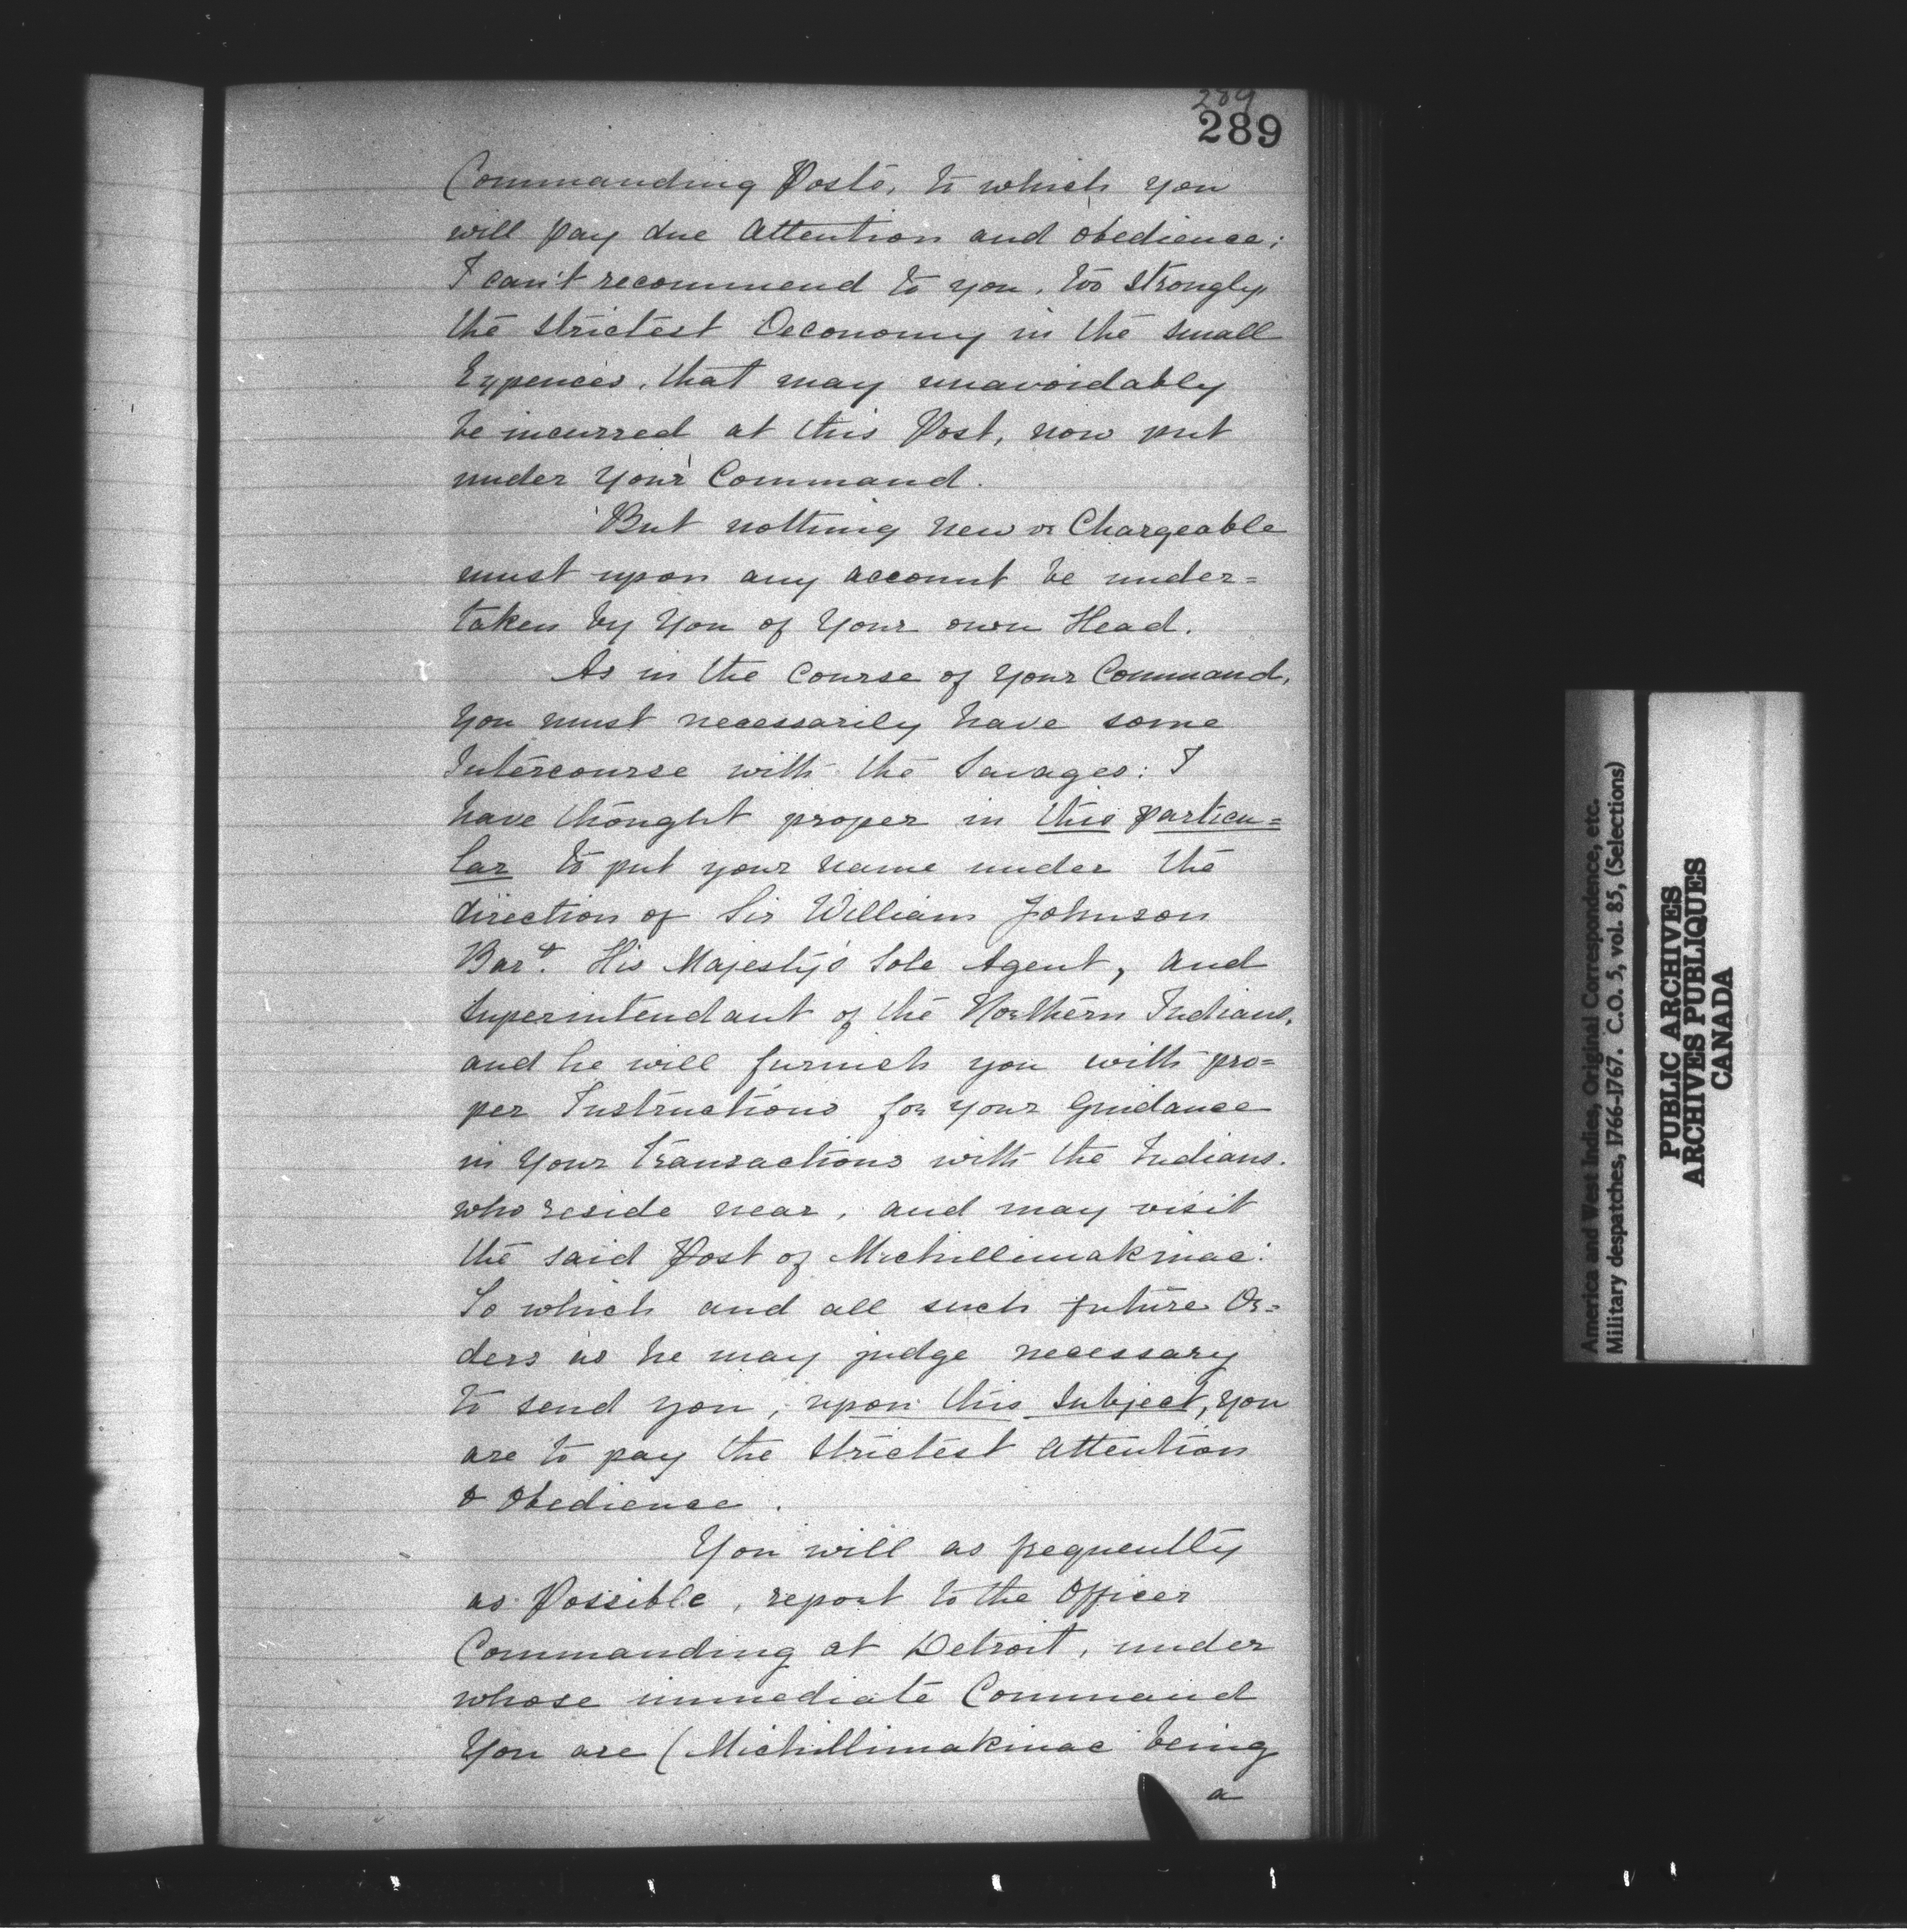 289
289
Commanding Posts, to which you
will pay due Attention and obedience;
I can't recommend to you, too strongly,
the strictest Oeconomy in the small
Expences, that may unavoidably
be incurred at this Post, now put
under Your Command.
But nothing new or Chargeable
must upon any account be under=
taken by You of Your own Head.
As in the Course of Your Command,
You must necessarily have some
Intercourse with the Savages: I
have thought proper in this particu=
lar to put your name under the
direction of Sir William Johnson
Bart. His Majesty's Sole Agent, and
Superintendant of the Northern Indians,
and he will furnish you with pro=
per Instructions for your Guidance
in Your Transactions with the Indians.
who reside near, and may visit
the said Post of Michillimakinac:
To which and all such future Or=
ders as he may judge necessary
to send you, upon this Subject, you
are to pay the Strictest Attention
& Obedience.
You will as frequently
as Possible, report to the Officer
Commanding at Detroit, under
whose immediate Command
You are (Michillimakinac being
a
America and West Indies, Original Correspondence, etc.
Military despatches, 1766-1767. C.O. 5, vol. 85, (Selections)
PUBLIC ARCHIVES
ARCHIVES PUBLIQUES
CANADA